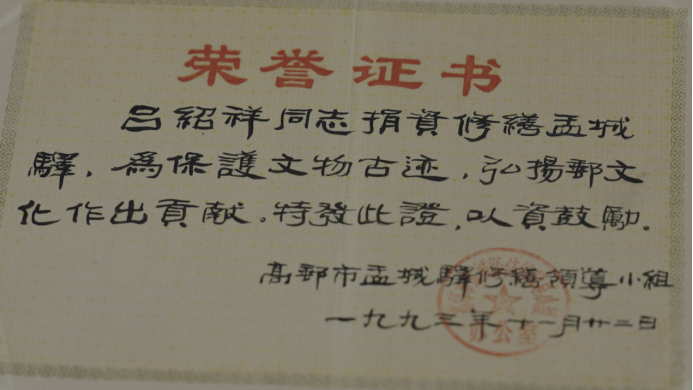 荣誉证书
吕紹祥同志捐資修繕盂城
驛，為保護文物古迹，弘揚郵文
化作出貢献，特發此證，以資鼓勵。
高郵市盂城驛修繕領導小组
一九九三年十一月廿二日
办公室